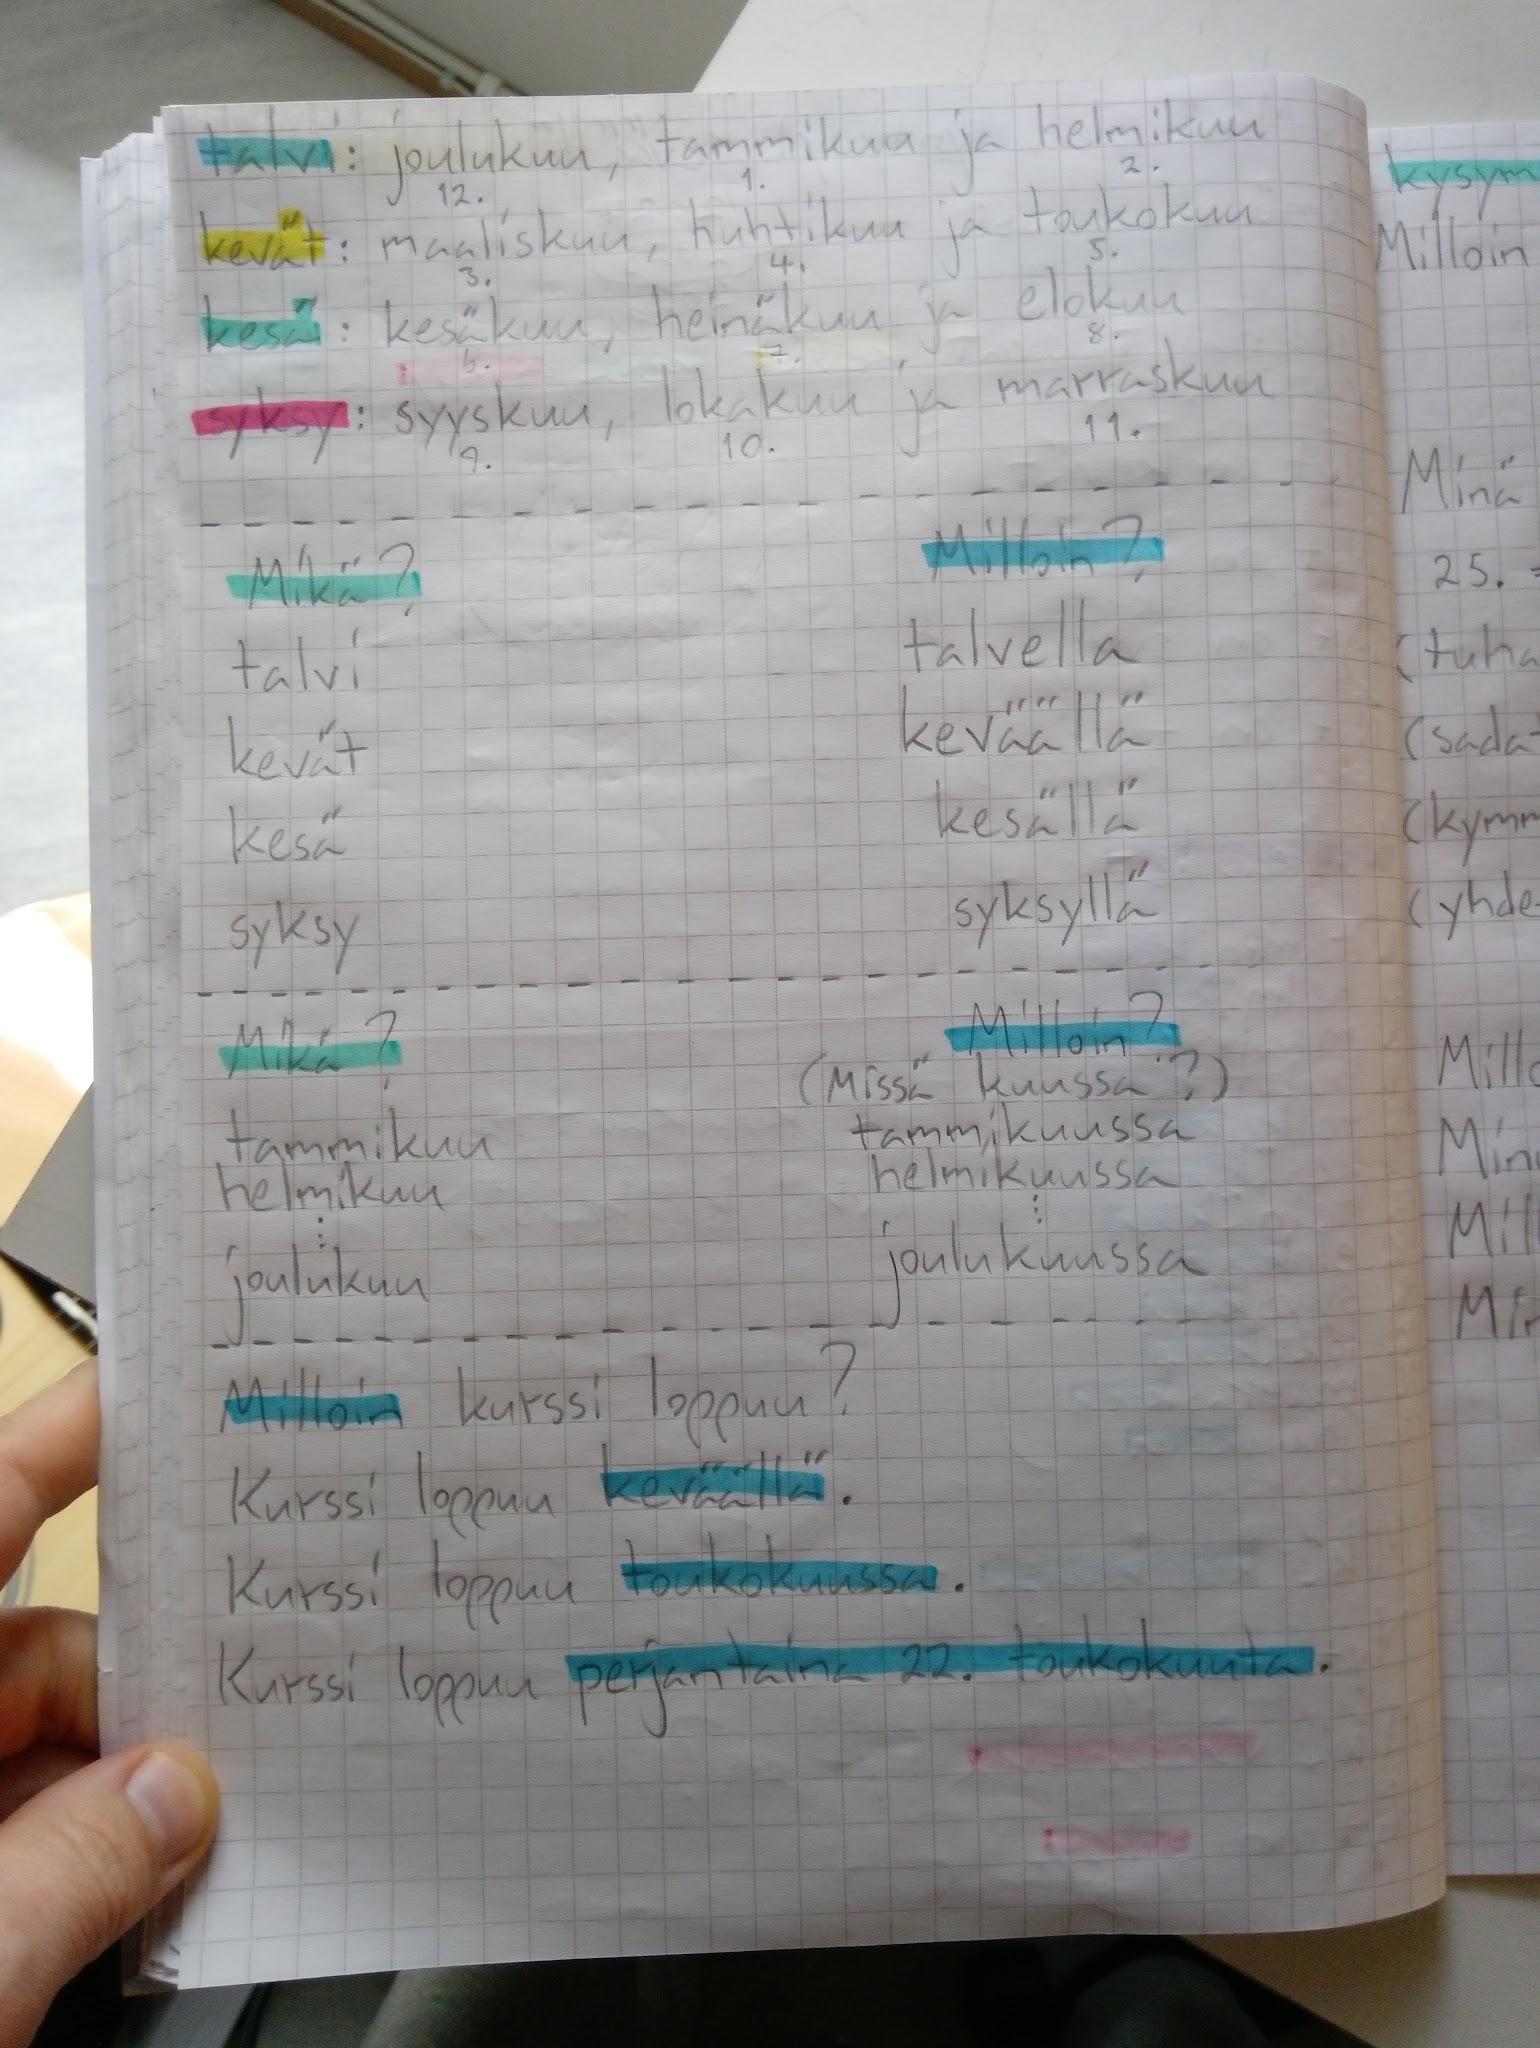 talvi: joulukuu, tammikuu ja helmikuu
12. 1. 2.
kevät: maaliskuu, huhtikuu ja toukokuu
3. 4. 5.
kesä: kesäkuu, heinäkuu ja elokuu
6. 7. 8.
syksy: syyskuu, lokakuu ja marraskuu
9. 10. 11.
Mikä? Milloin?
talvi talvella
kevät keväällä
kesä kesällä
syksy syksyllä
Mikä? Milloin?
(Missä kuussa?)
tammikuu tammikuussa
helmikuu helmikuussa
joulukuu joulukuussa
Milloin kurssi loppuu?
Kurssi loppuu keväällä.
Kurssi loppuu toukokuussa.
Kurssi loppuu perjantaina 22. toukokuuta.
kysym
Milloin
Minä
25. =
(tuha
(sada
(kymm
(yhde
Millo
Min
Mill
Mi